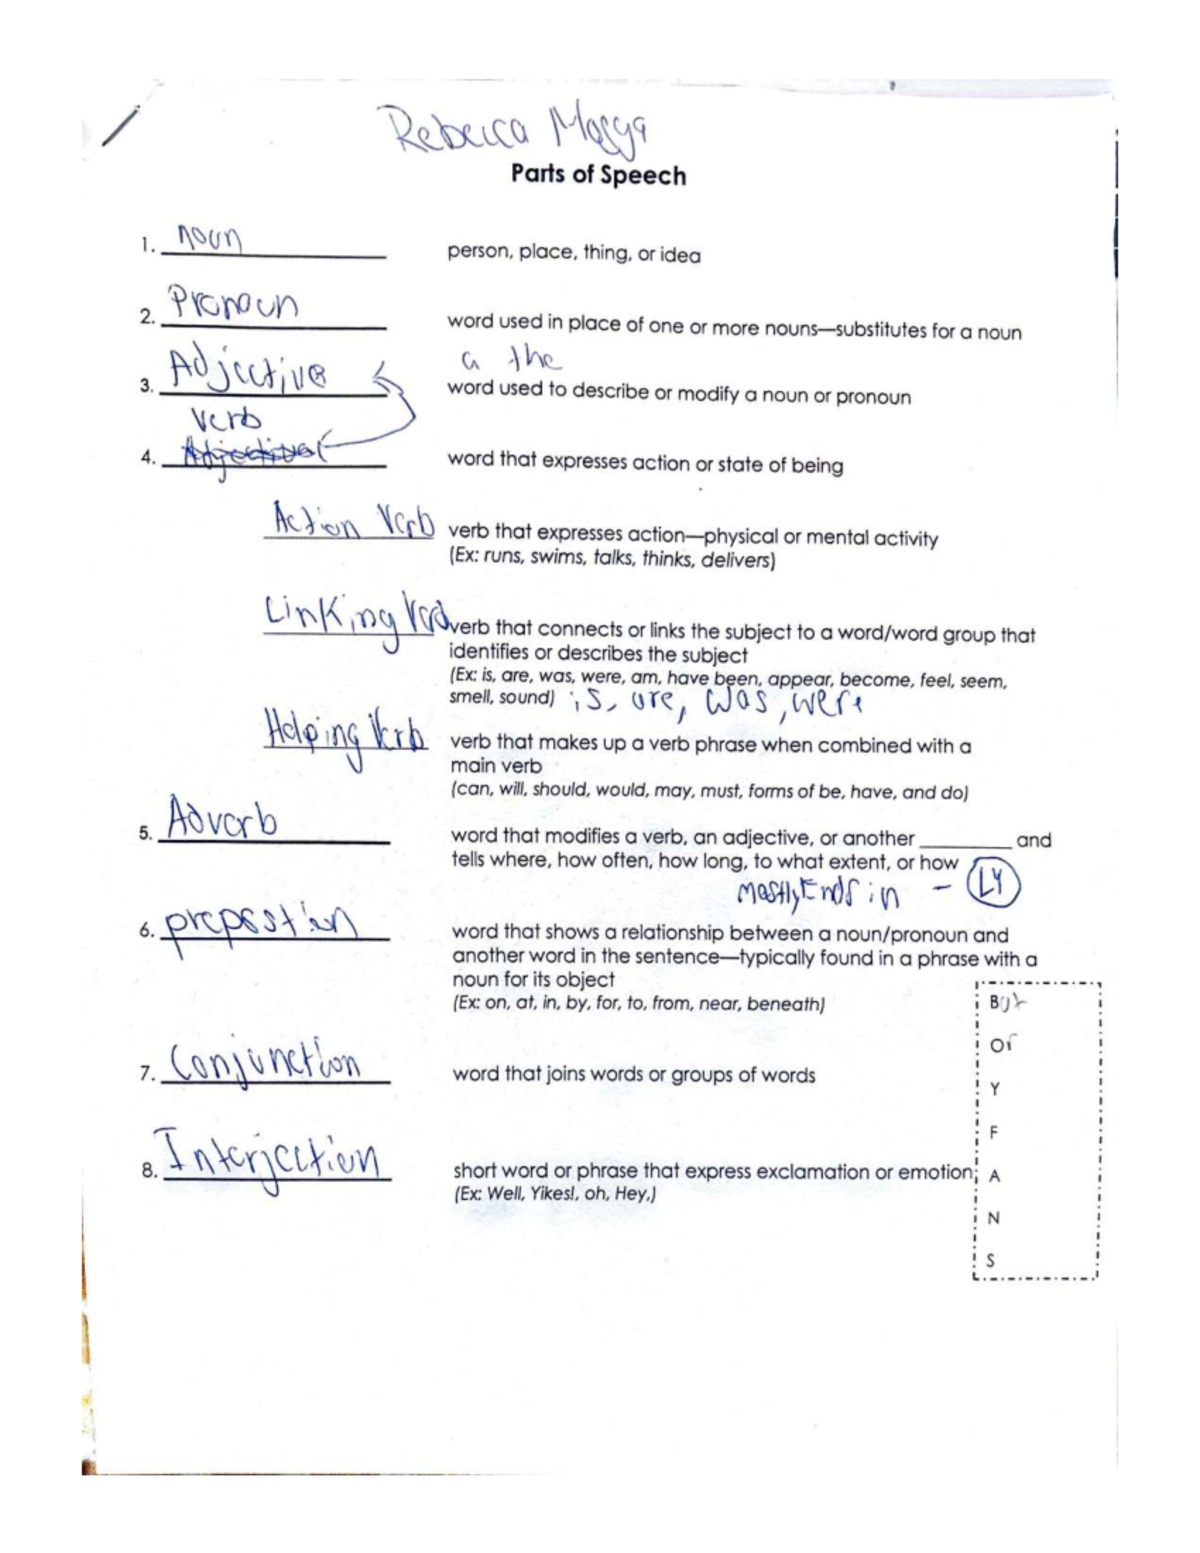 Rebecca
Parts of Speech
1. noun person, place, thing, or idea
2. Pronoun word used in place of one or more nouns—substitutes for a noun
a the
3. Adjective word used to describe or modify a noun or pronoun
Verb
4. Adjective word that expresses action or state of being
Action Verb verb that expresses action—physical or mental activity
(Ex: runs, swims, talks, thinks, delivers)
Linking verb that connects or links the subject to a word/word group that
identifies or describes the subject
(Ex: is, are, was, were, am, have been, appear, become, feel, seem,
smell, sound) is, are, was, were
Helping Verb verb that makes up a verb phrase when combined with a
main verb
(can, will, should, would, may, must, forms of be, have, and do)
5. Adverb word that modifies a verb, an adjective, or another ________ and
tells where, how often, how long, to what extent, or how
mostly Ends in - LY
6. prepostion word that shows a relationship between a noun/pronoun and
another word in the sentence—typically found in a phrase with a
noun for its object
(Ex: on, at, in, by, for, to, from, near, beneath)
7. Conjunction word that joins words or groups of words
8. Interjection short word or phrase that express exclamation or emotion
(Ex: Well, Yikes!, oh, Hey,)
But
Or
Y
F
A
N
S